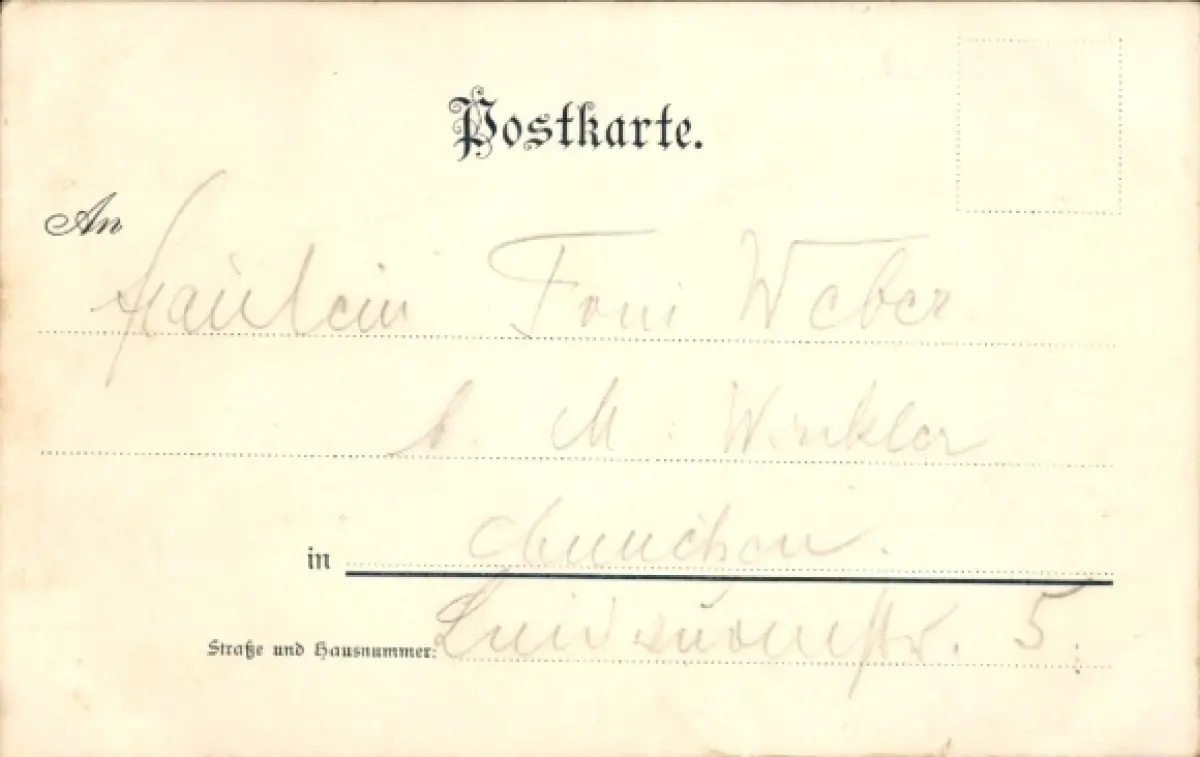 Postkarte.
An
Fräulein Toni Weber
b. M. Winkler
in München.
Straße und Hausnummer: 5.